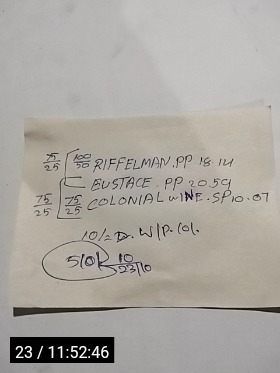 75/25 [ 100/50 RIFFELMAN.PP 18.14
EUSTACE. PP 20.59
75/25 [ 75/25 COLONIAL WINE. SP10.07
10/2 D. W/P. 10/.
510K 10
23/10
23 / 11:52:46